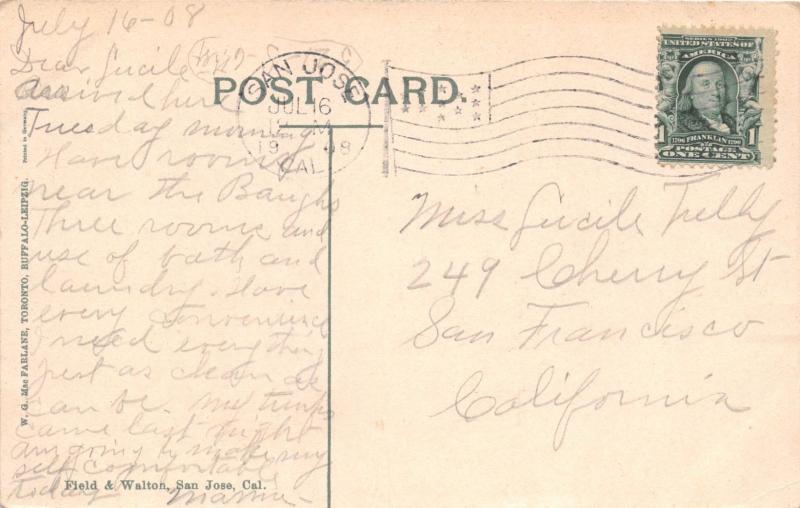 July 16-08
Dear Lucile
Arrived here
Tuesday morning
Have rooms
near the Baughs
Three rooms and
use of bath and
laundry. Have
every convenience
need everything
just as clean as
can be. My trunks
came last night
am going to make my
self comfortable
today Mama-
POST CARD.
SAN JOSE
JUL 16
M
19 08
CAL
SERIES 1902
UNITED STATES OF
AMERICA
1 1
1706 FRANKLIN 1790
POSTAGE
ONE CENT
Miss Lucile
249 Cherry St
San Francisco
California
Printed in Germany
W. G. Mac FARLANE, TORONTO, BUFFALO-LEIPZIG.
Field & Walton, San Jose, Cal.